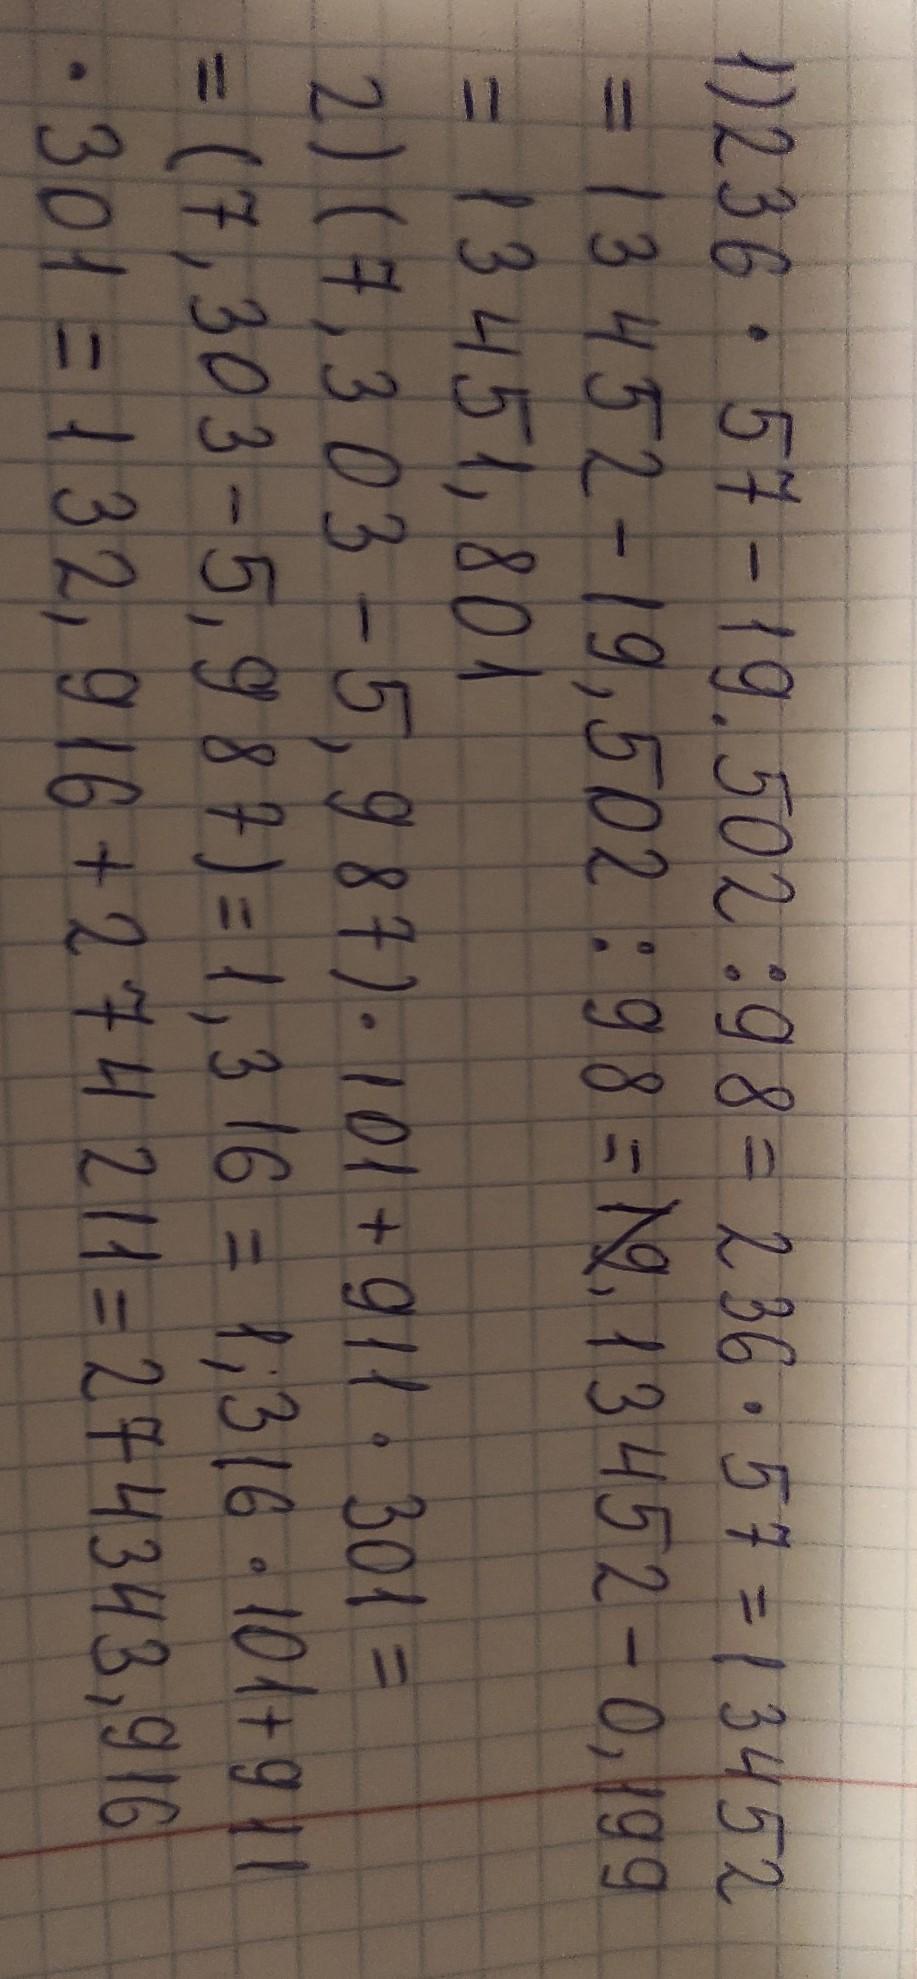 1) 236 · 57 - 19.502 : 98 = 236 · 57 = 13452
= 13452 - 19,502 : 98 = 13452 - 0,199
= 13451,801
2) (7,303 - 5,987) · 101 + 911 · 301 =
= (7,303 - 5,987) = 1,316 = 1,316 · 101 + 911
· 301 = 132,916 + 274211 = 274343,916